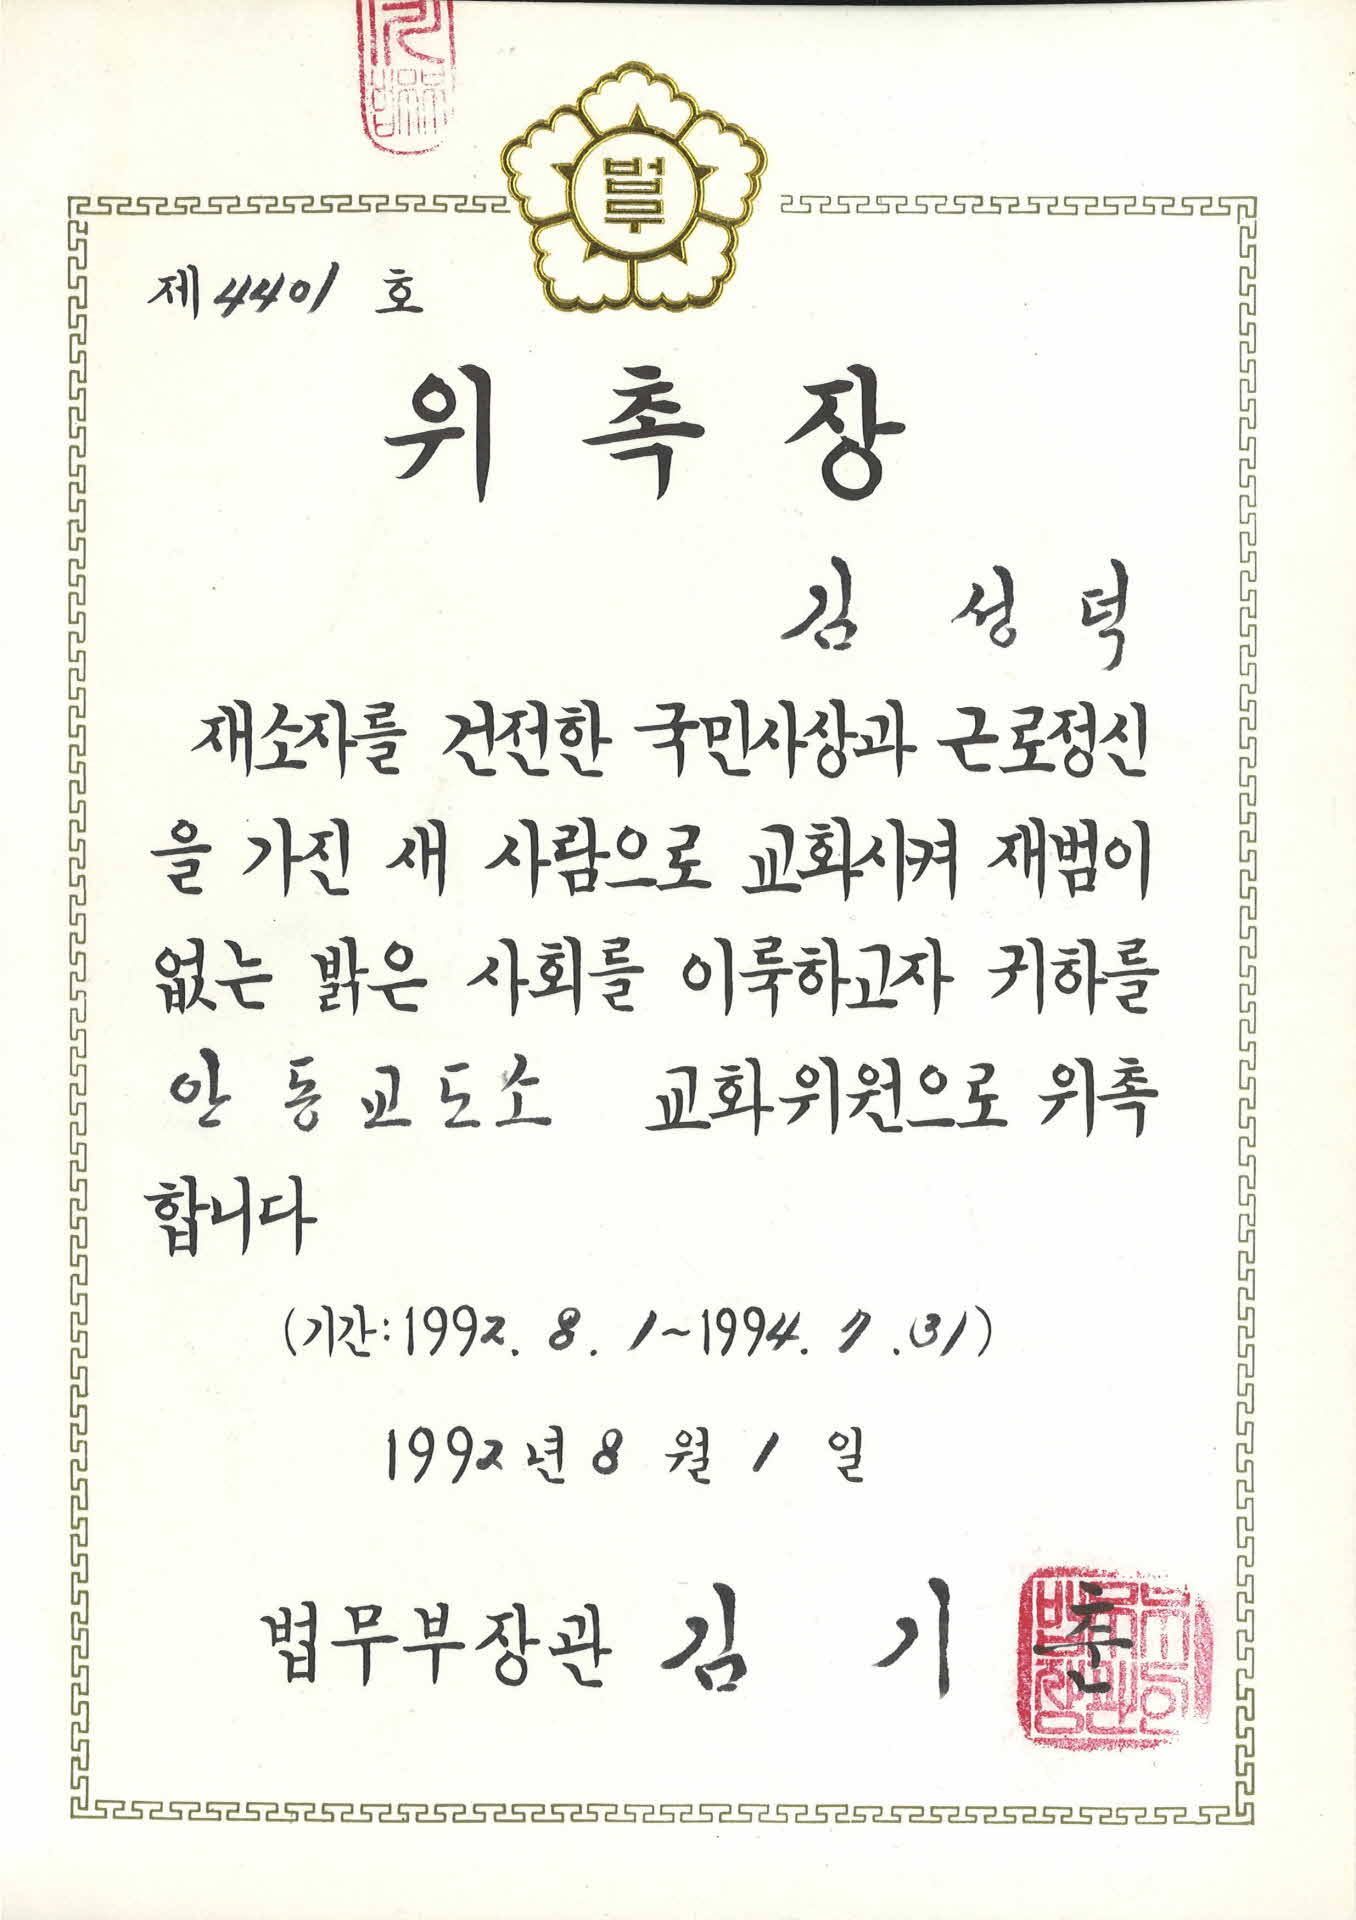 법무
제 4401 호
위 촉 장
김 성 덕
재소자를 건전한 국민사상과 근로정신
을 가진 새 사람으로 교화시켜 재범이
없는 밝은 사회를 이룩하고자 귀하를
안동교도소 교화위원으로 위촉
합니다
(기간: 1992. 8. 1 ~ 1994. 7. 31)
1992년 8 월 1 일
법무부장관 김 기 춘